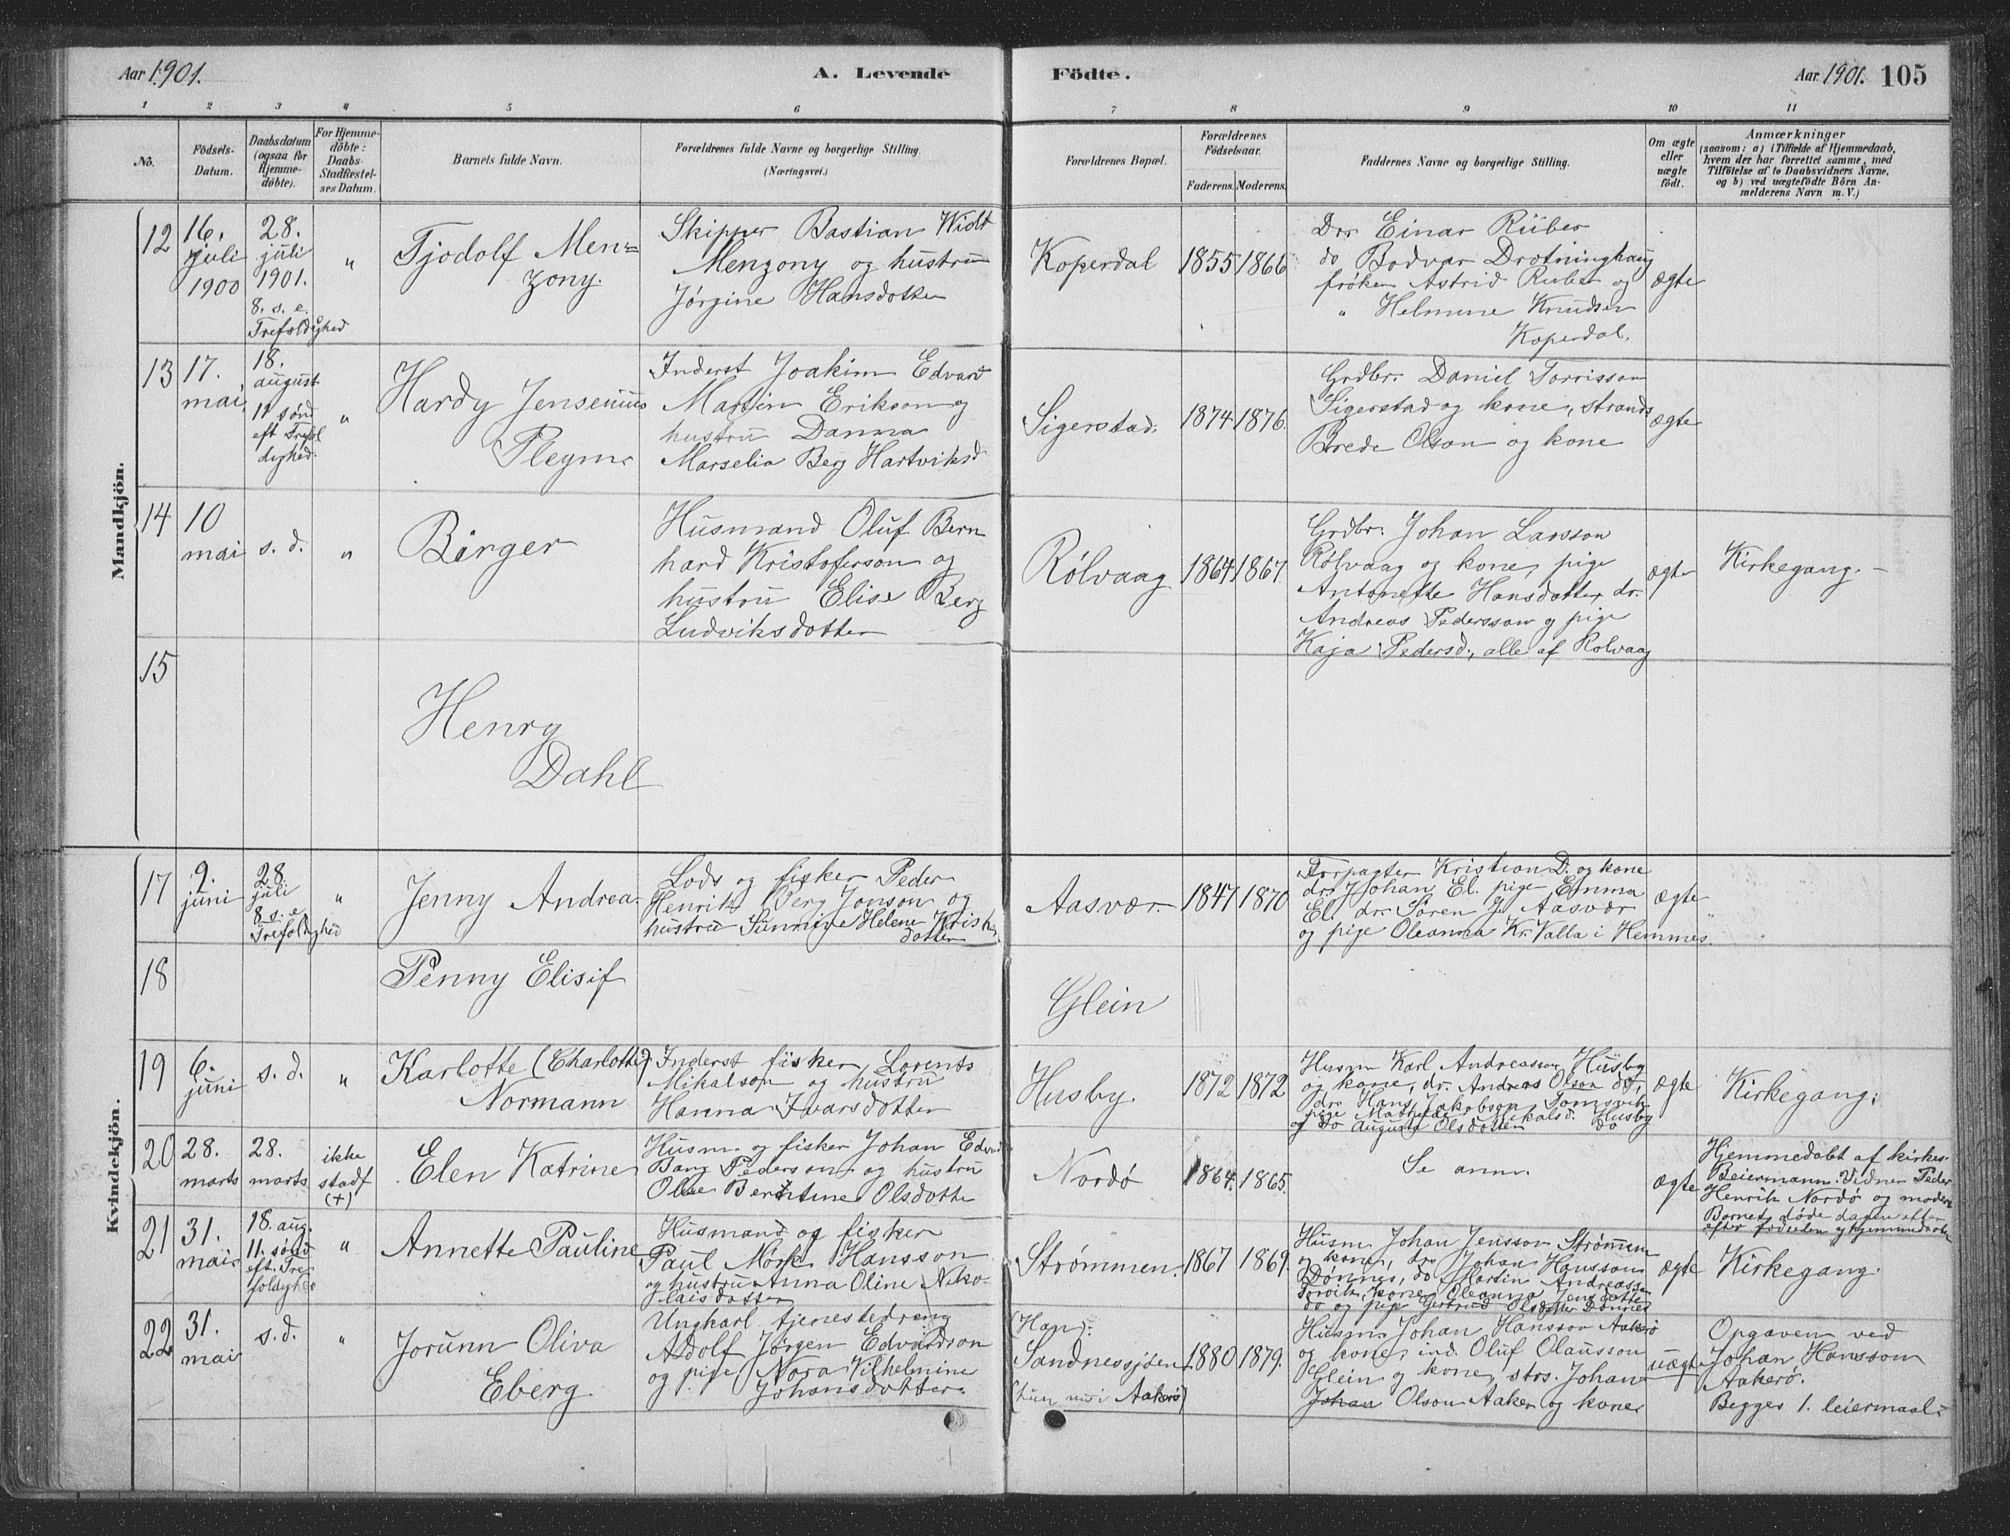 Aar 1901.
A. Levende
Födte.
Aar 1901. 105
1 2 3 4 5 6 7 8 9 10 11
No.
Födsels-
Datum.
Daabsdatum
(ogsaa for
Hjemme-
döbte).
For Hjemme-
döbte:
Daabs-
Stadfæstel-
ses Datum.
Barnets fulde Navn.
Forældrenes fulde Navne og borgerlige Stilling.
(Næringsvei.)
Forældrenes Bopæl.
Forældrenes
Födselsaar.
Faderens. Moderens.
Faddernes Navne og borgerlige Stilling.
Om ægte
eller
uægte
födt.
Anmærkninger
(saasom: a) i Tilfælde af Hjemmedaab,
hvem der har forrettet samme, med
Tilföielse af to Daabsvidners Navne,
og b) ved uægtefödte Börn An-
melderens Navn m. V.)
Mandkjön.
12
16.
juli
1900
28.
juli
1901.
8. s. e.
Trefoldighed
"
Tjodolf Men-
zony.
Skipper Bastian Widt
Menzony og hustru
Jørgine Hansdotter
Koperdal
1855 1866
Drr Einar Rüber
do Bodvar Drotninghaug
frøken Astrid Ruber og
" Helmine Knudsen
Koperdal.
ægte
13
17.
mai,
18.
august
11 sønd
eft Trefol
dighed.
"
Hardy Jensenius
Pleym.
Inderst Joakim Edvard
Martin Erikson og
hustru Danma
Marselia Berg Hartviksd
Sigerstad.
1874. 1876.
Grdbr. Daniel Torrisson
Sigerstad og kone, strands
Brede Olson og kone
ægte
14
10
mai
s. d.
"
Birger
Husmand Oluf Bern
hard Kristoferson og
hustru Elise Berg
Ludviksdotter
Rölvaag
1864. 1867.
Grdbr. Johan Larsson
Rölvaag og kone, pige
Antonette Hansdotter, dr.
Andreas Pedersson og pige
Kaja Pedersd., alle af Rolvaag
ægte
Kirkegang.
15
Henry
Dahl
Kvindekjön.
17
9.
juni
28.
juli
8 s. e
Trefoldighed
"
Jenny Andrea.
Lods og fisker Peder
Henrik Berg Jonson og
hustru Sunnive Helene Krist
dotter
Aasvær.
1847 1870
Forpagter Kristian D. og kone
dr. Johan El. pige Emma
El. dr. Sören G. Aasvær
og pige Oleanna Kr. Valla i Hemnes.
ægte
18
Penny Elisif
Glein
19
6.
juni
s. d.
"
Karlotte (Charlotte)
Normann
Inderst fisker Lorents
Mikalson og hustru
Hanna Ivarsdotter
Husby.
1872 1872
Husm Karl Andreassen Husby
og kone, dr. Andreas Olson do,
dr. Hans Jakobson Tomsvik
pige Mathilde Mikalsd. Husby
og do Augusta Olsdotter do
ægte
Kirkegang.
20
28.
marts
28.
marts
ikke
stadf
(+)
Elen Katrine
Husm. og fisker Johan Edvard
Bang Pederson og hustru
Oline Berntine Olsdotte
Nordö
1864. 1865.
Se anm.
ægte
Hjemmedøbt af kirkes.
Beiermann. Vidner Peder
Henrik Nordö og modern
Barnet døde dagen etter
21
31.
mai
18. aug.
11. sönd
eft. Tre
foldighed
"
Annette Pauline
Husmand og fisker
Paul Mörk Hansson
og hustru Anna Oline Niko-
laisdotter
Strømmen.
1867 1869.
Husm. Johan Jensson Strømmen
og kone, dr. Johan Hansson
Dönnes, do Martin Andreass
Torvik, kone Oleanna Jensdotter
do og pige Gertrud Olsdotter Dönnes
ægte
Kirkegang.
22
31.
mai
s. d.
"
Jorunn Oliva
Eberg.
Ungkarl tjenestedreng
Adolf Jørgen Edvardson
og pige Nora Vilhelmine
Johansdotter.
(Han):
Sandnessjöen
(hun nu i Aakerö)
1880 1879.
Husm. Johan Hansson Aakerö
og kone, ind. Oluf Olausson
Glein og kone, strs. Johan
Johan Olson Aaker og kone
uægte
Opgaven ved
Johan Hansson
Aakerö.
Begges 1. leiermaal.